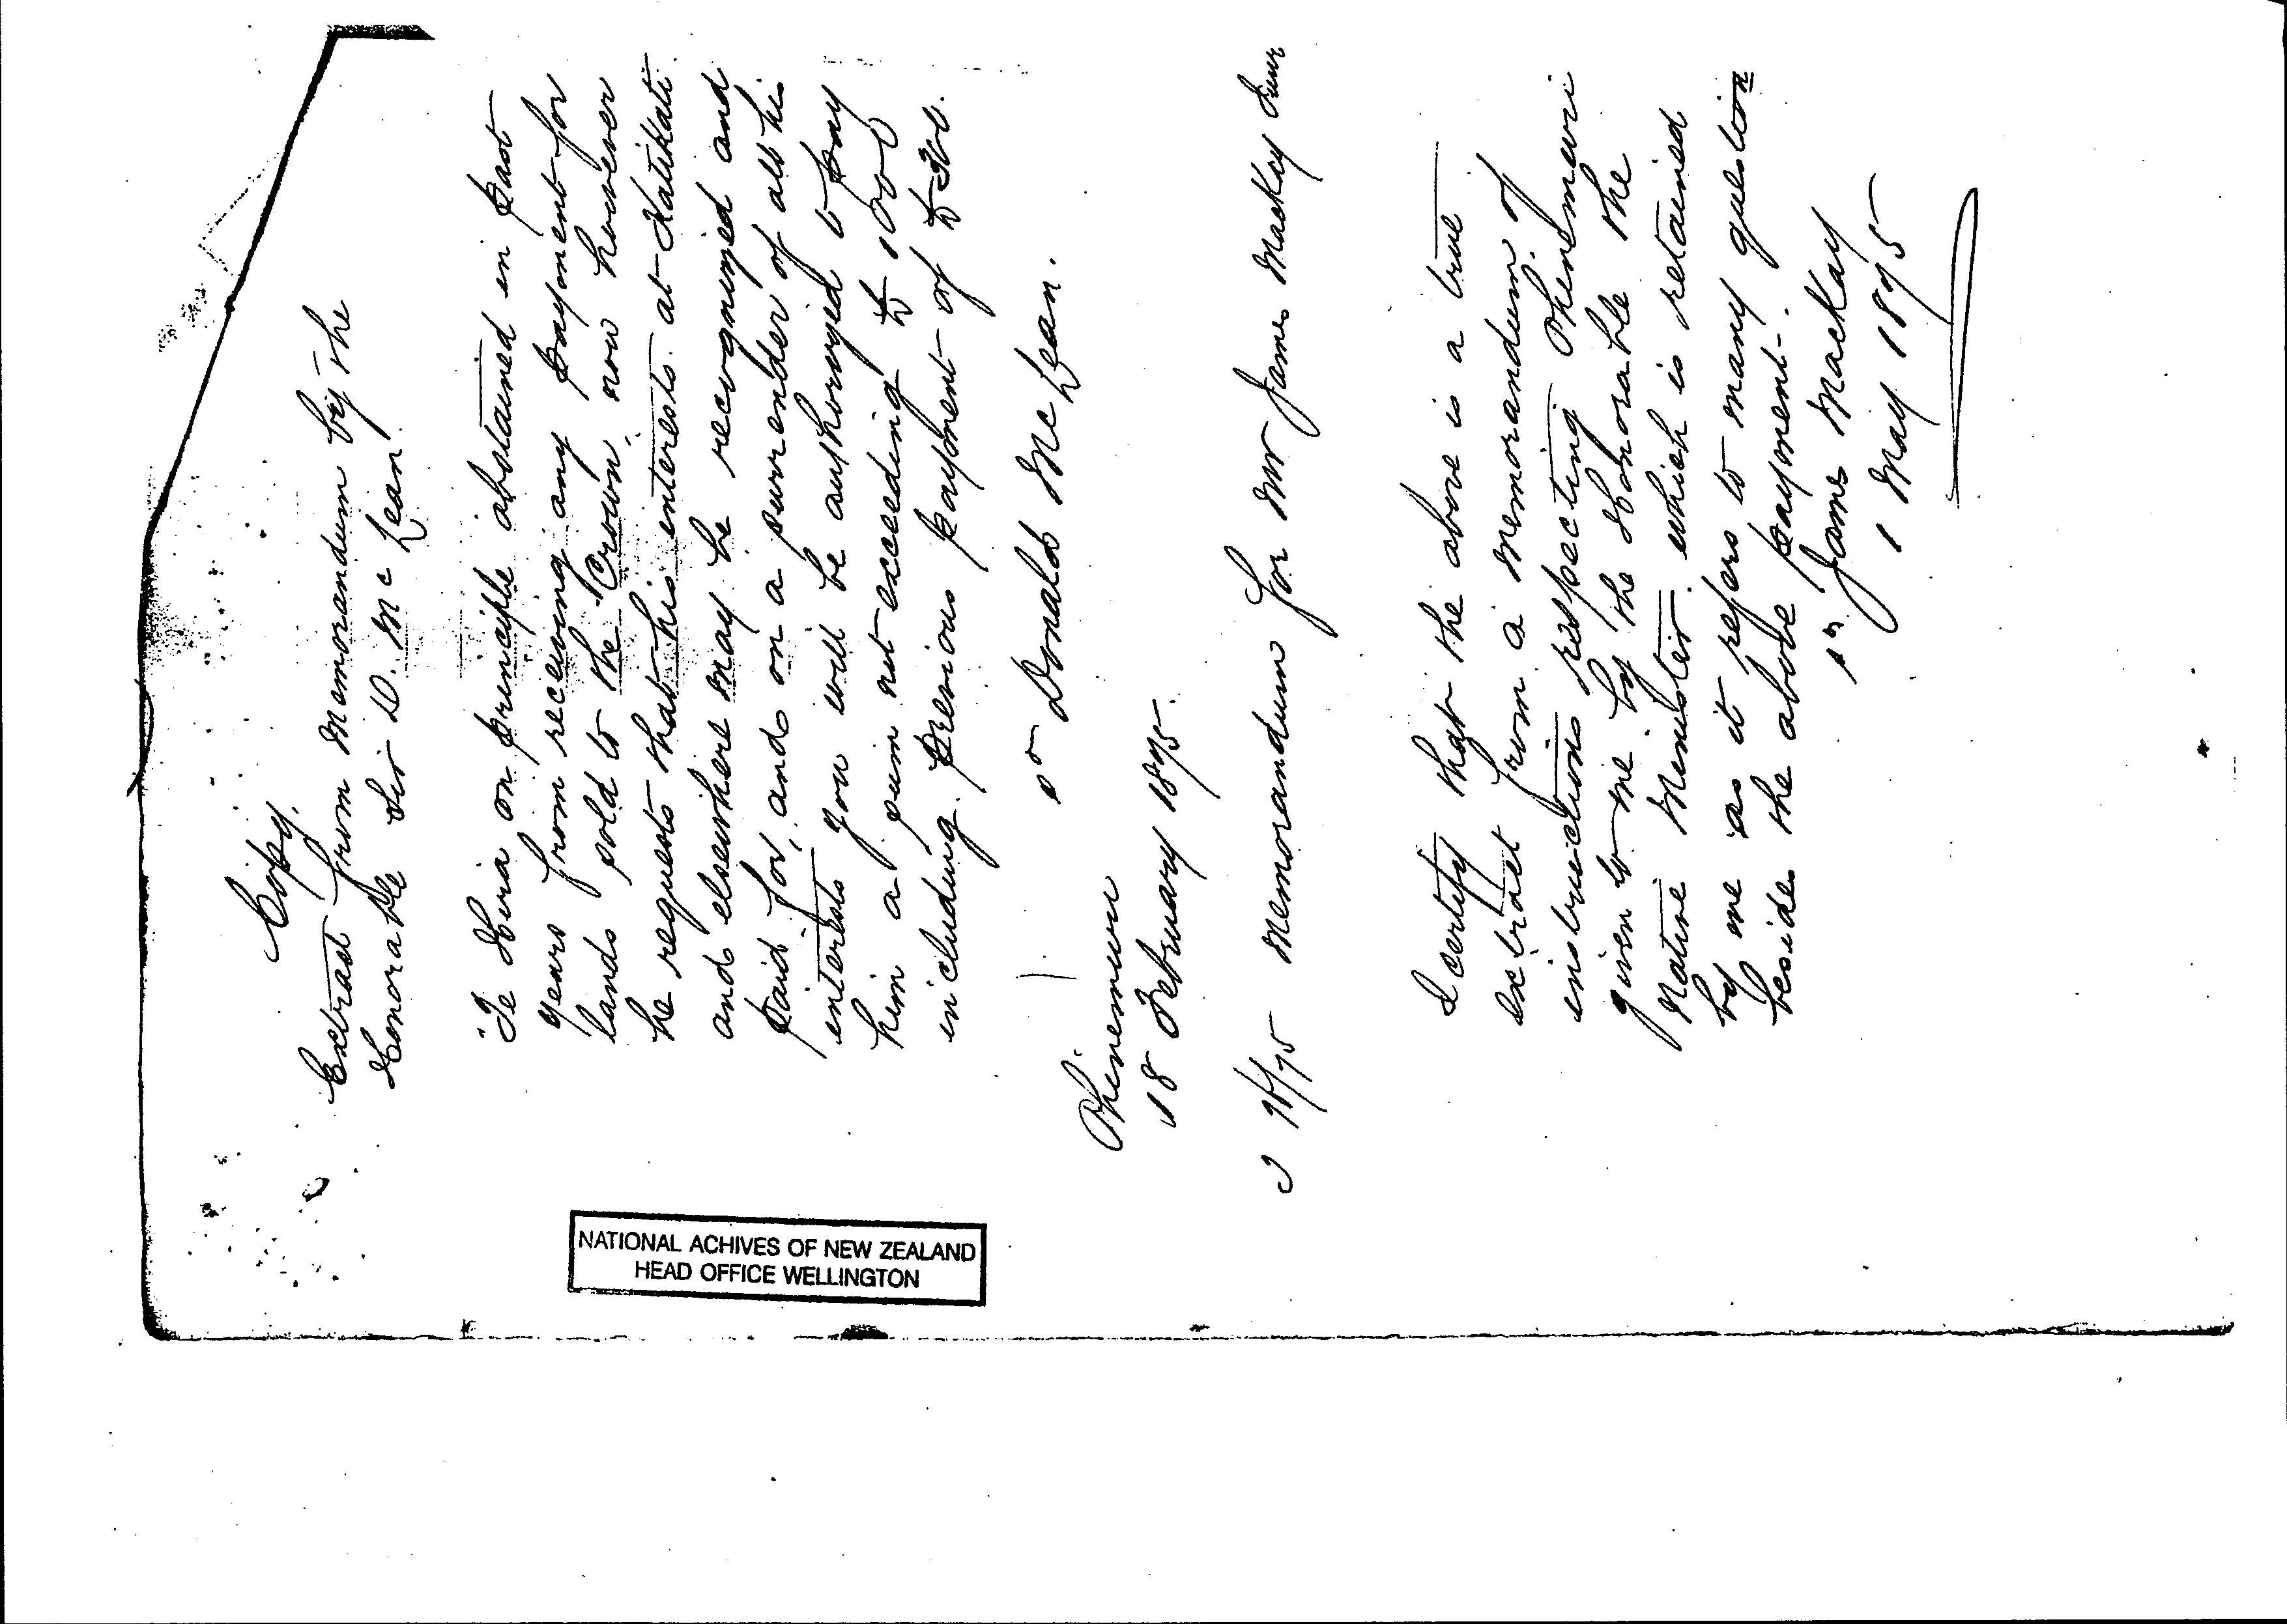 Copy.
Extract from Memorandum by the
Honorable Sir D. McLean.
"Te Hira on principle abstained in past
years from receiving any payment for
lands sold to the Crown, now however
he requests that his interests at Katikati
and elsewhere may be recognized and
paid for, and on a surrender of all his
interests you will be authorized to pay
him a sum not exceeding £1000
including previous payment of £300.
sd Donald McLean.
Ohinemuri
18 February 1875.
Memorandum for Mr James Mackay Junr
I certify that the above is a true
extract from a memorandum of
instructions respecting Ohinemuri
given to me by the Honorable the
Native Minister. which is retained
by me as it refers to many question
beside the above payment.
sd. James Mackay
1 May 1875
NATIONAL ACHIVES OF NEW ZEALAND
HEAD OFFICE WELLINGTON